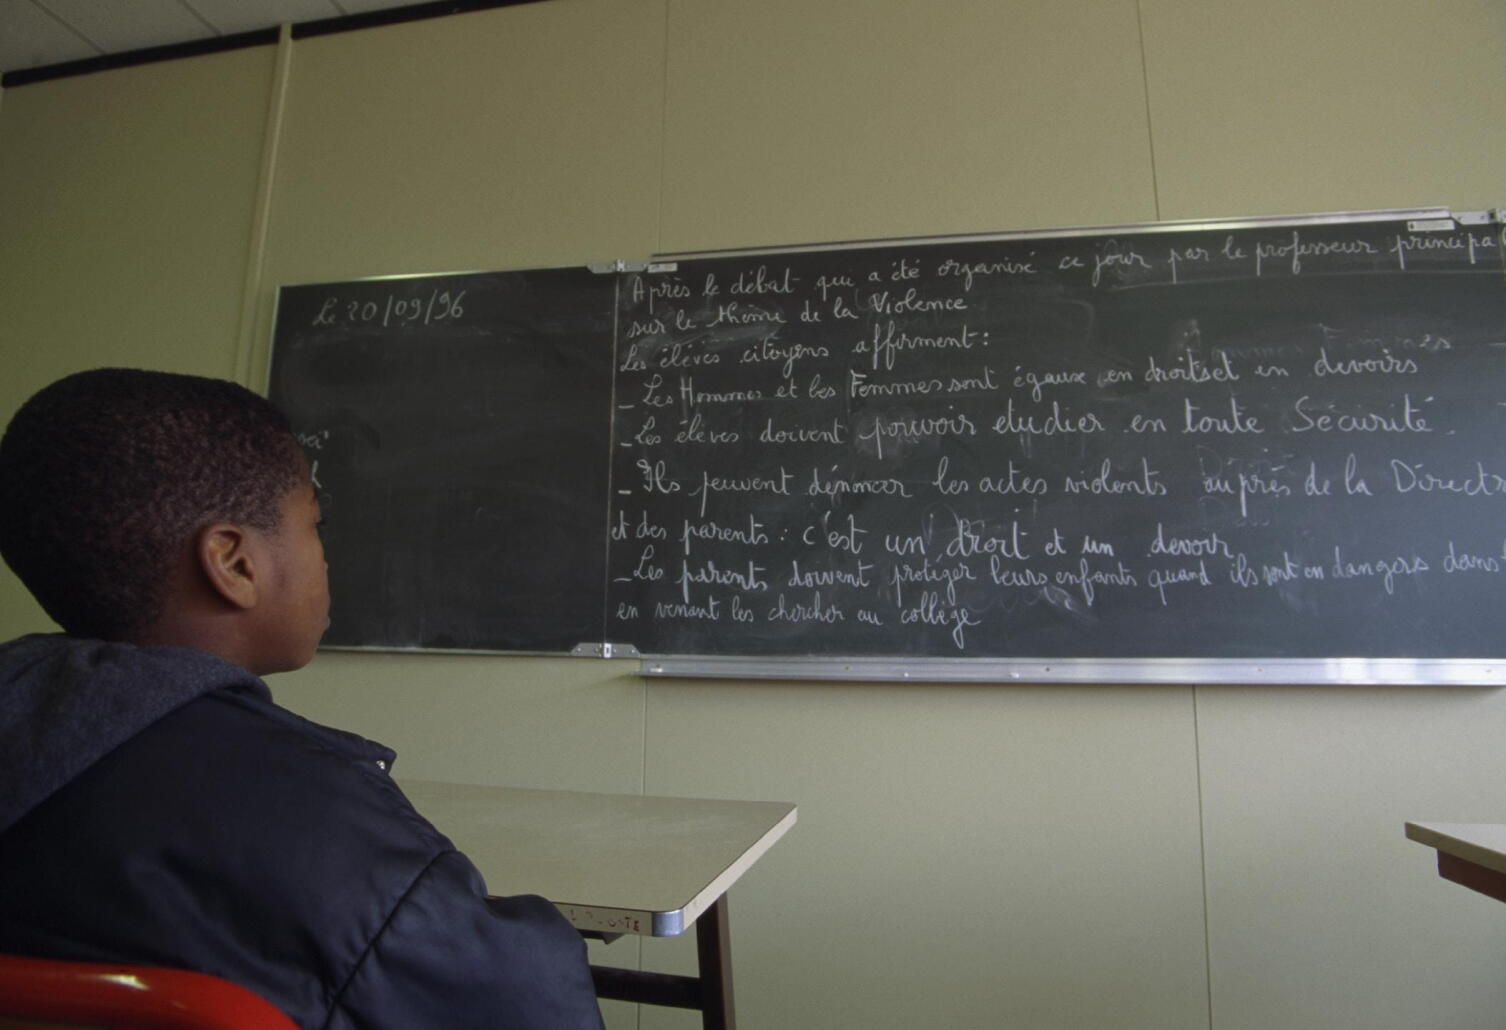 Le 20/09/96
Après le débat qui a été organisé ce jour par le professeur principal
sur le thème de la Violence
Les élèves citoyens affirment:
_ Les Hommes et les Femmes sont égaux en droits et en devoirs
_ Les élèves doivent pouvoir etudier en toute Sécurité.
_ Ils peuvent dénoncer les actes violents auprès de la Directr
et des parents : c'est un droit et un devoir
_ Les parents doivent protéger leurs enfants quand ils sont en dangers dans
en venant les chercher au collège